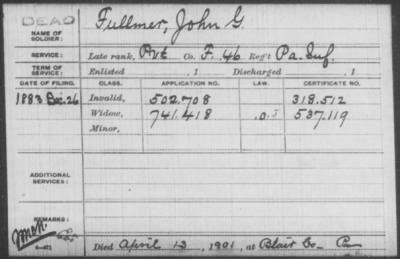 DEAD
NAME OF SOLDIER: Fullmer, John G.
SERVICE: Late rank, Pvt Co. F. 46 Reg't Pa. Inf.
TERM OF SERVICE: Enlisted , 1 Discharged , 1
DATE OF FILING. CLASS. APPLICATION NO. LAW. CERTIFICATE NO.
1883 Dec. 26 Invalid, 502.708 318.512
Widow, 741.418 537.119
Minor,
ADDITIONAL SERVICES:
REMARKS:
Died April 13, 1901, at Blair Co Pa